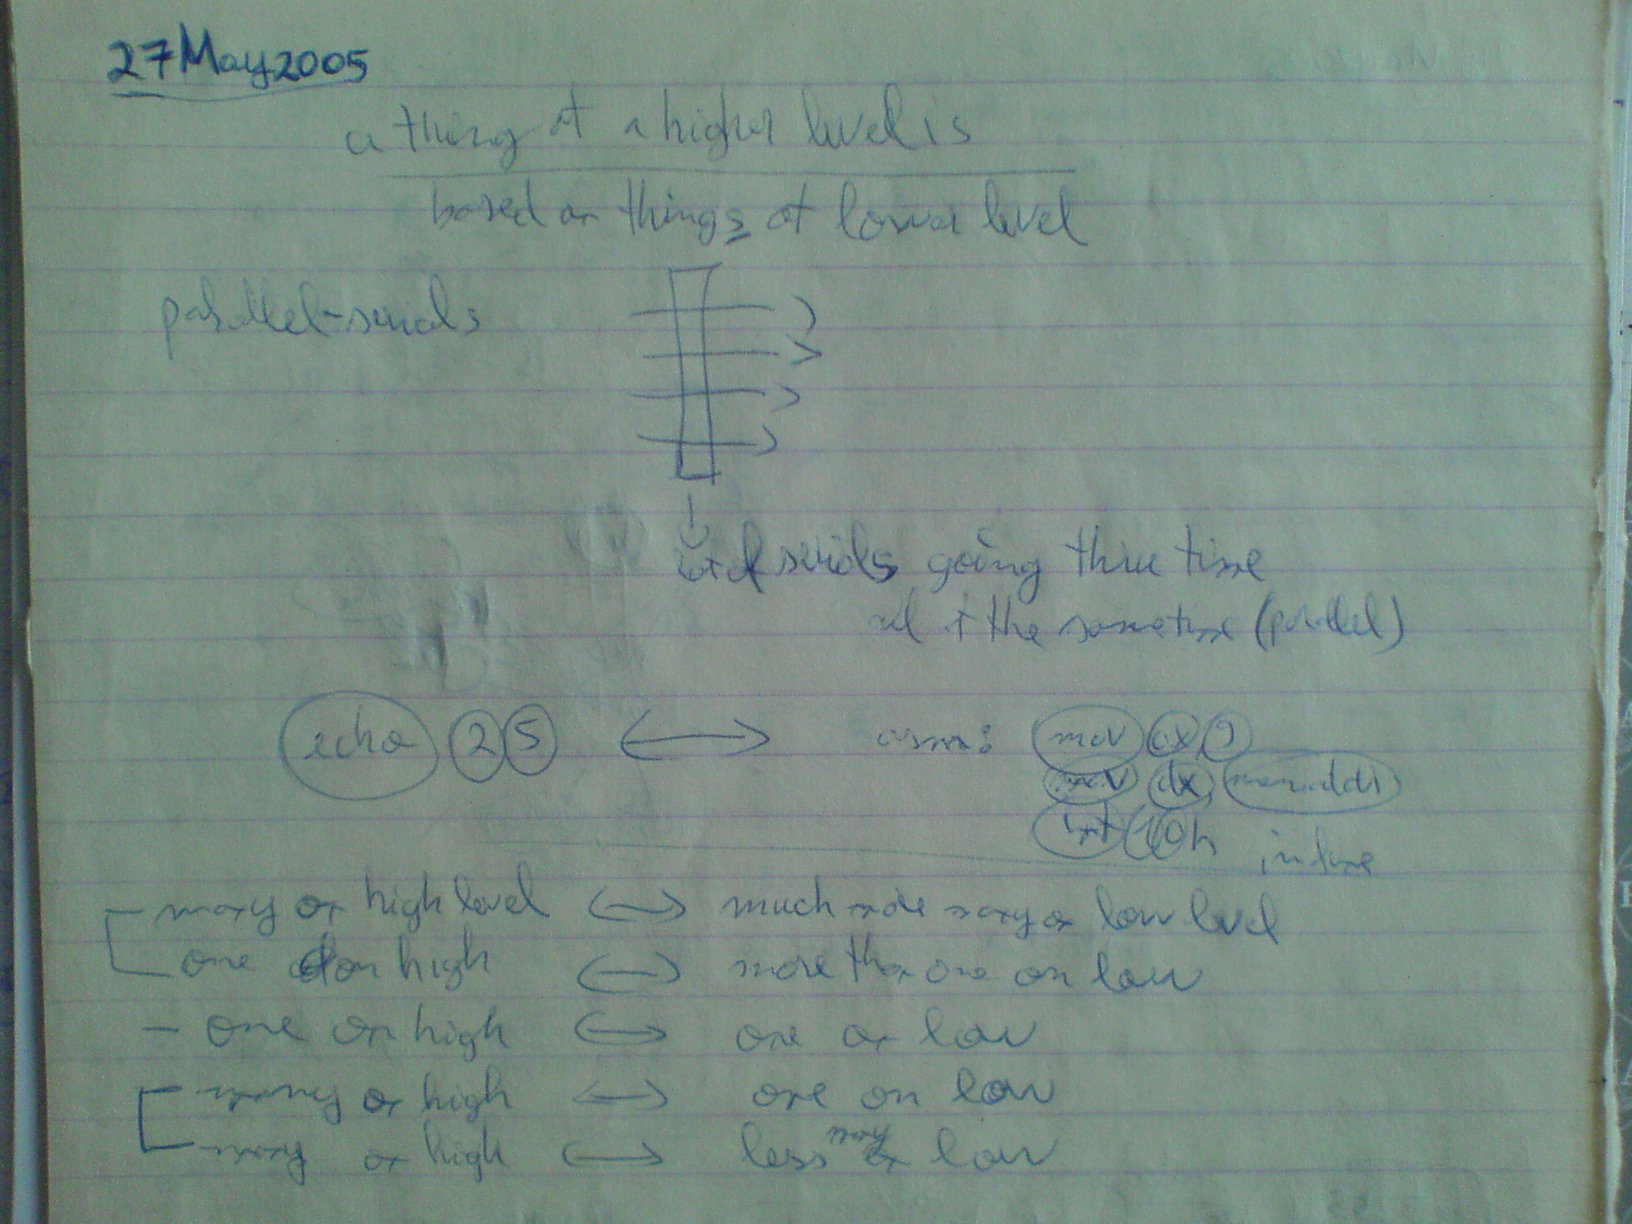 27May2005
a thing at a higher level is
based on things at lower level
parallel-serials
serials going thru time
at the same time (parallel)
echo 25
asm: mov cx,9
mov dx, mem.addr
int 10h
inline
many on high level much more many on low level
one on high more than one on low
- one on high one on low
many on high one on low
many on high less many on low